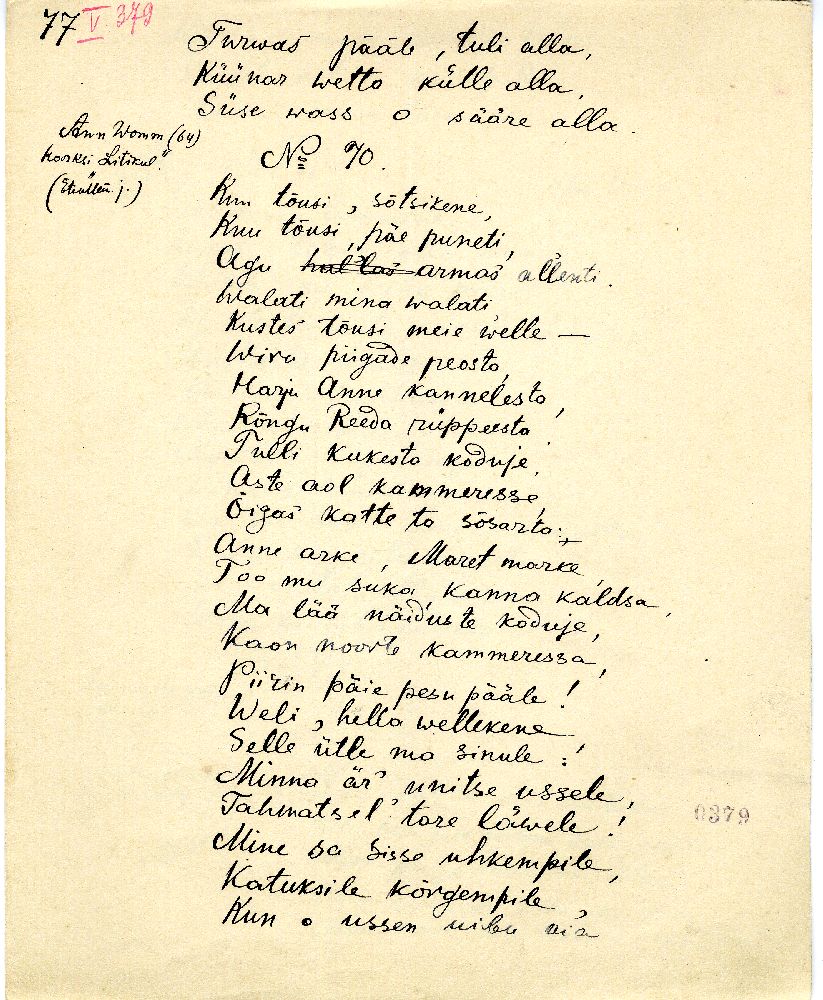 77 V 379
Turwas pääle, tuli alla,
Küünar wetta külle alla,
Süse wass o sääre alla.
Ann Womm (64)
№ 70.
Kuu tõusi, sõtsikene,
Kuu tõusi, päe puneti,
Agu hallas armas allenti.
Walati mina walati
Kustes tõusi meie welle —
Wiru piigade peosta,
Harju Anne kannelesta,
Rõngu Reeda rüppeesta.
Tulli kukesta koduje,
Aste aol kammeresse,
Õigas katte ta sõsarta:
Anne arke, Maret marke,
Too mu suka kanna kaldsa,
Ma lää näiduste koduje,
Kaon noorte kammeressa,
Piirin päie pesu pääle!
Weli, hella wellekene,
Selle ütle ma sinule:
Minna är' unitse ussele,
Tahmatsel' tare läwele!
Mine sa sisse uhkempile,
Katuksile kõrgempile,
Kun o ussen uibu aia
0379